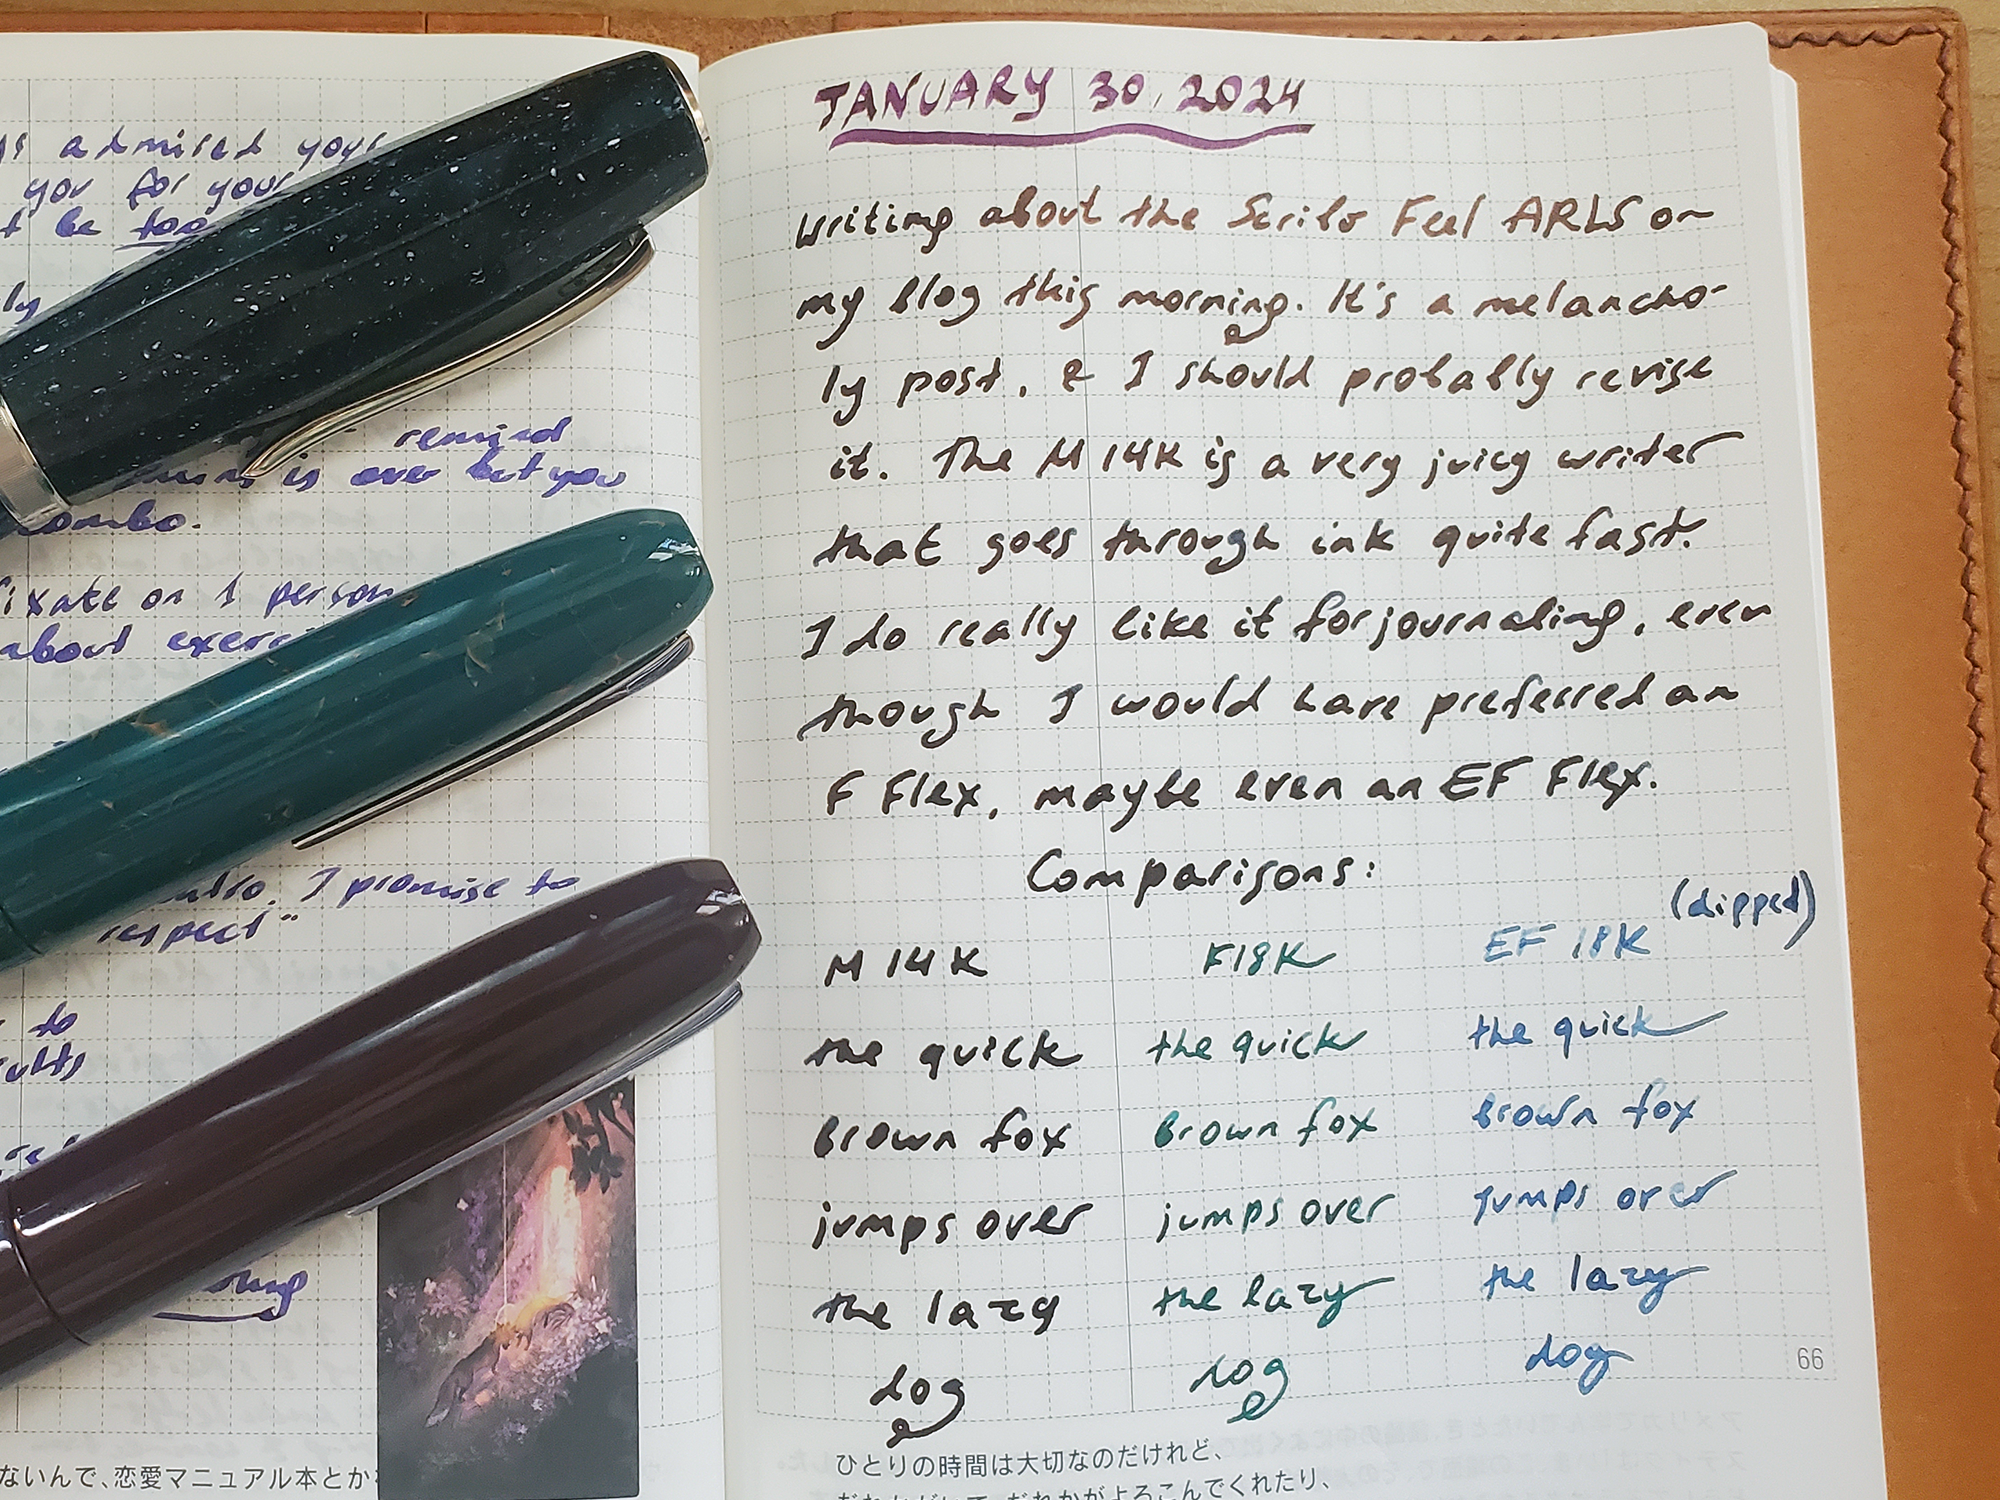 admired your
you for your
be too
ly
remind
is over but you
combo.
fixate on 1 person
about
I promise to
respect"
to
ないんで、恋愛マニュアル本とか
JANUARY 30, 2024
Writing about the Scribo Feel ARLS on
my blog this morning. It's a melancho-
ly post, & I should probably revise
it. The M 14K is a very juicy writer
that goes through ink quite fast.
I do really like it for journaling, even
though I would have preferred an
F Flex, maybe even an EF Flex.
Comparisons:
M 14K F18K EF 18K (dipped)
the quick the quick the quick
brown fox brown fox brown fox
jumps over jumps over jumps over
the lazy the lazy the lazy
dog dog dog
66
ひとりの時間は大切なのだけれど、
だれかがよろこんでくれたり、